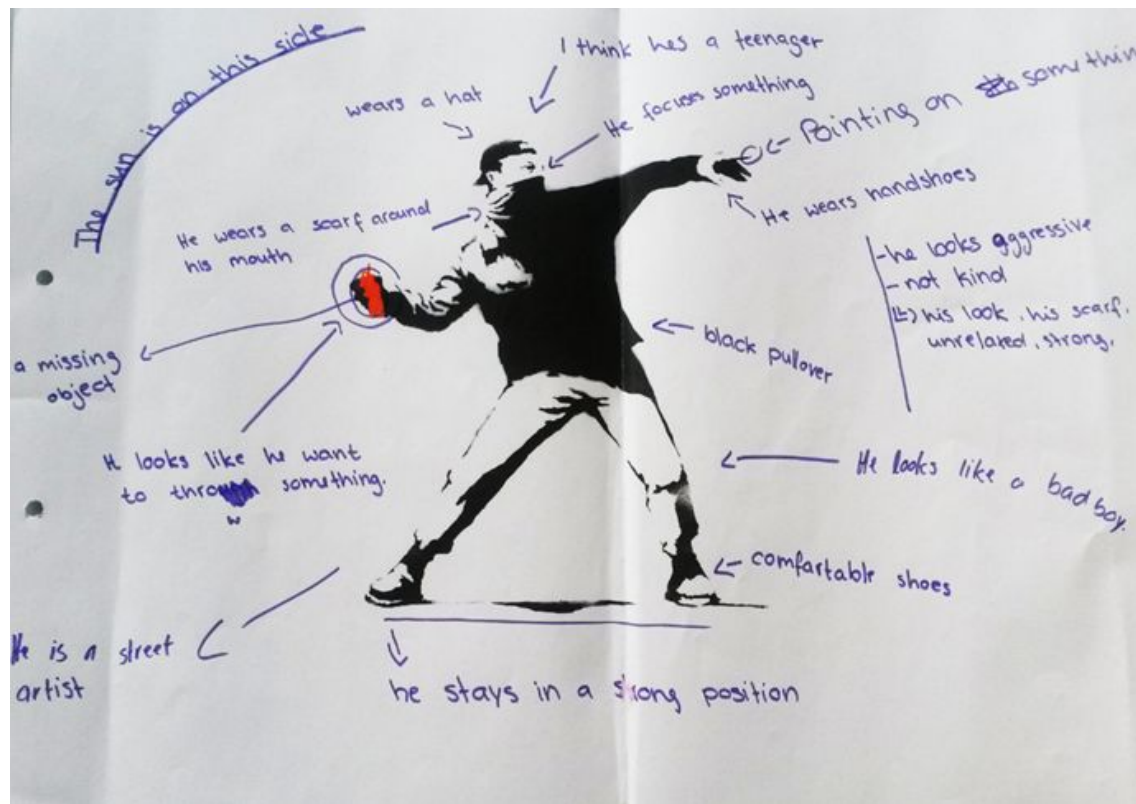 The sun is on this side
I think hes a teenager
wears a hat
He focuses something
Pointing on somethin
He wears handshoes
He wears a scarf around
his mouth
-he looks aggressive
-not kind
his look, his scarf,
unrelated, strong.
a missing
object
black pullover
It looks like he want
to throw something.
He looks like a bad boy.
comfartable shoes
He is a street
artist
he stays in a strong position